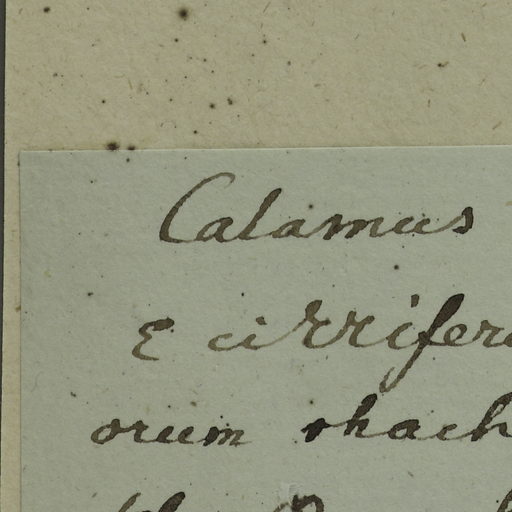 Calamus
& cirrifer
orum rhach